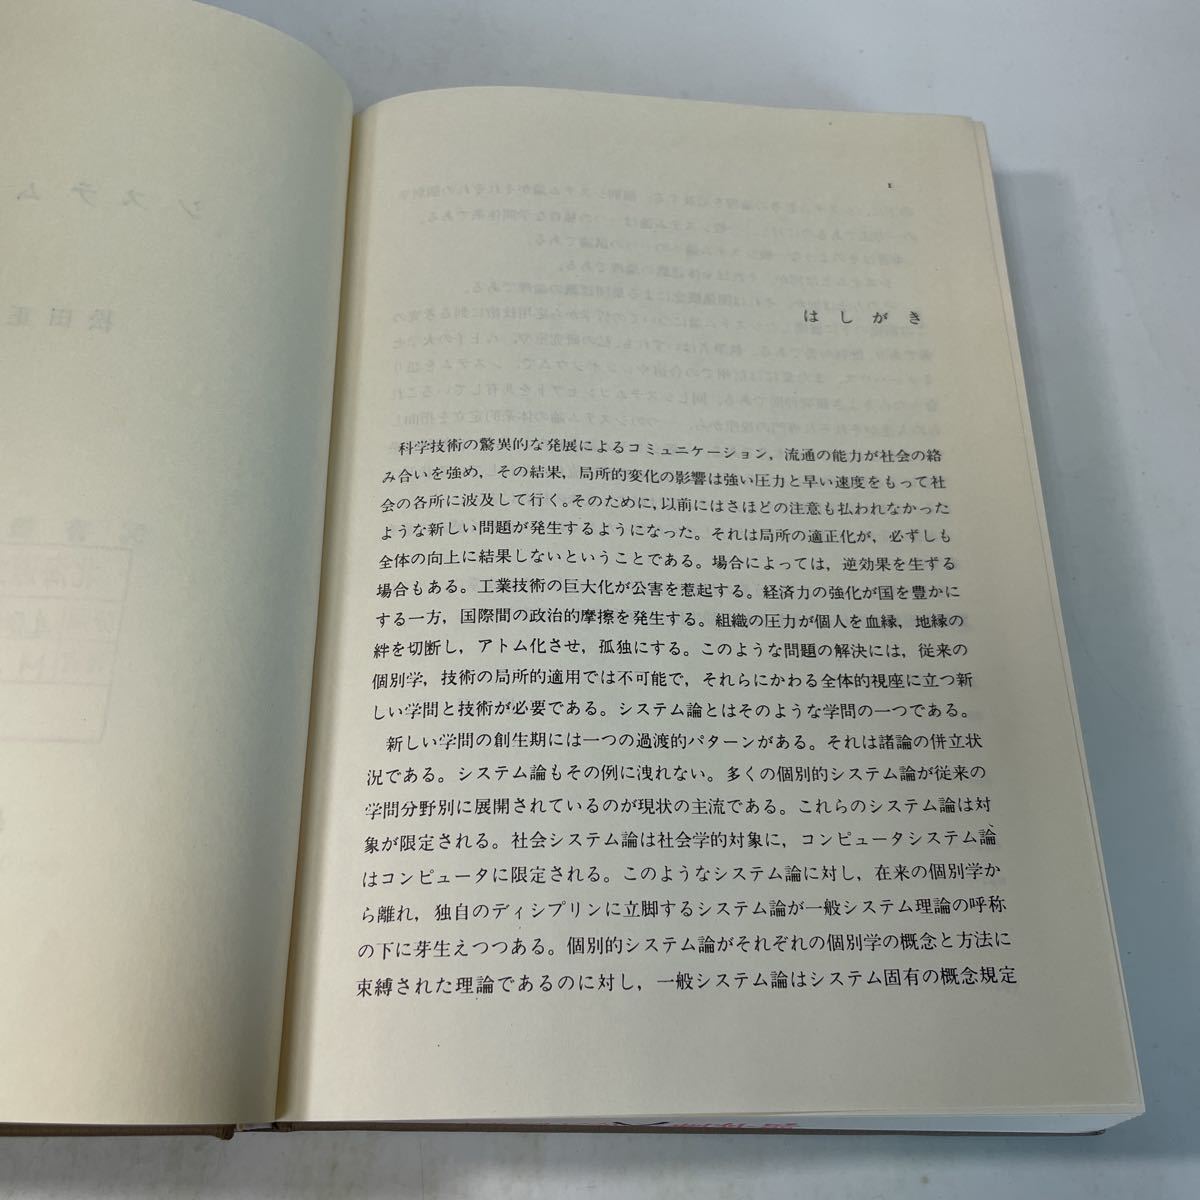 システム
松田正
1
はしがき
科学技術の驚異的な発展によるコミュニケーション，流通の能力が社会の絡
み合いを強め，その結果，局所的変化の影響は強い圧力と早い速度をもって社
会の各所に波及して行く。そのために，以前にはさほどの注意も払われなかった
ような新しい問題が発生するようになった。それは局所の適正化が，必ずしも
全体の向上に結果しないということである。場合によっては，逆効果を生ずる
場合もある。工業技術の巨大化が公害を惹起する。経済力の強化が国を豊かに
する一方，国際間の政治的摩擦を発生する。組織の圧力が個人を血縁，地縁の
絆を切断し，アトム化させ，孤独にする。このような問題の解決には，従来の
個別学，技術の局所的適用では不可能で，それらにかわる全体的視座に立つ新
しい学問と技術が必要である。システム論とはそのような学問の一つである。
新しい学問の創生期には一つの過渡的パターンがある。それは諸論の併立状
況である。システム論もその例に洩れない。多くの個別的システム論が従来の
学問分野別に展開されているのが現状の主流である。これらのシステム論は対
象が限定される。社会システム論は社会学的対象に，コンピュータシステム論
はコンピュータに限定される。このようなシステム論に対し，在来の個別学か
ら離れ，独自のディシプリンに立脚するシステム論が一般システム理論の呼称
の下に芽生えつつある。個別的システム論がそれぞれの個別学の概念と方法に
束縛された理論であるのに対し，一般システム論はシステム固有の概念規定